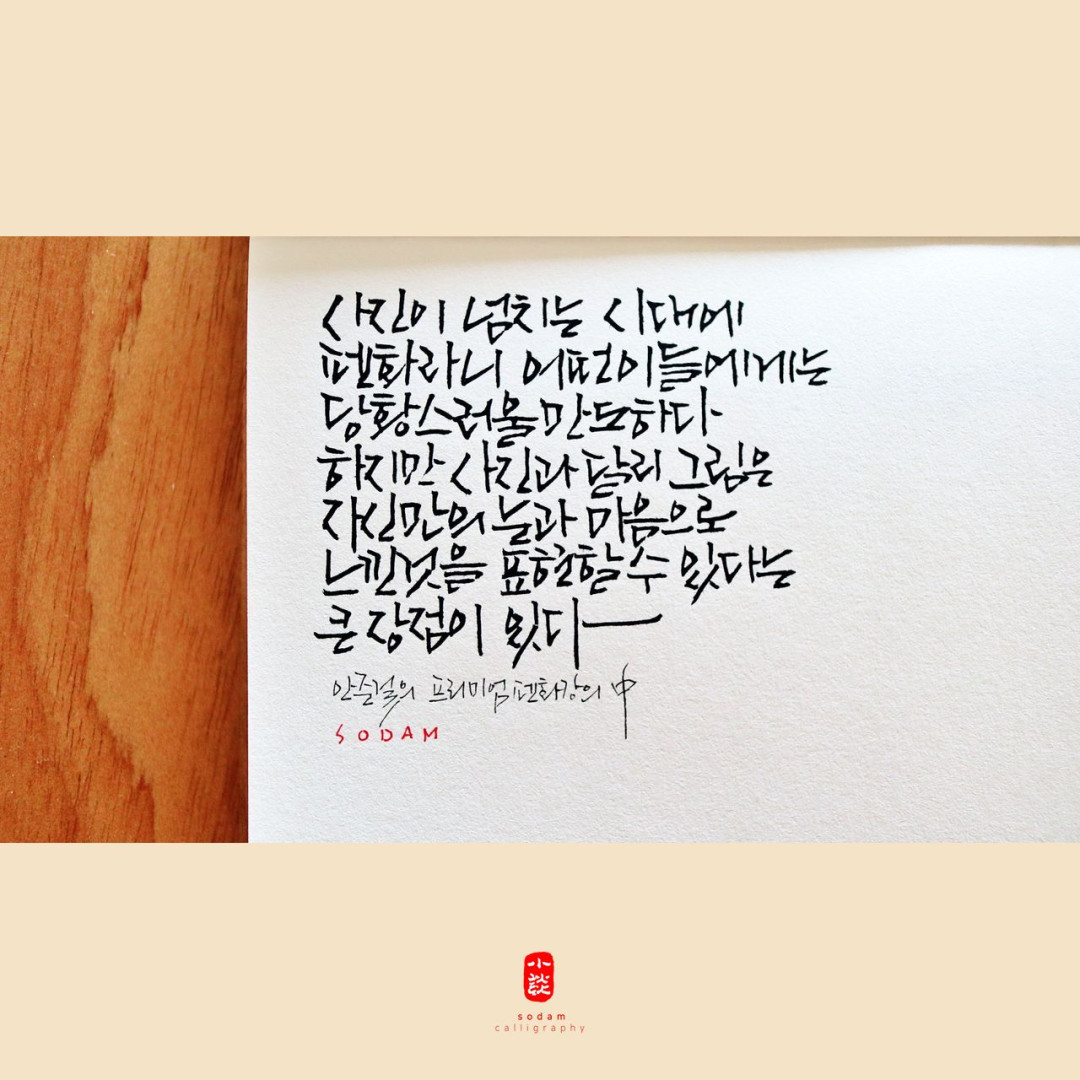 사진이 넘치는 시대에
펜화라니 어떤이들에게는
당황스러울만도하다
하지만 사진과 달리 그림은
자신만의 눈과 마음으로
느낀것을 표현할수 있다는
큰 장점이 있다
안준걸의 프리미엄펜화강의 中
SODAM
小談
sodam
calligraphy